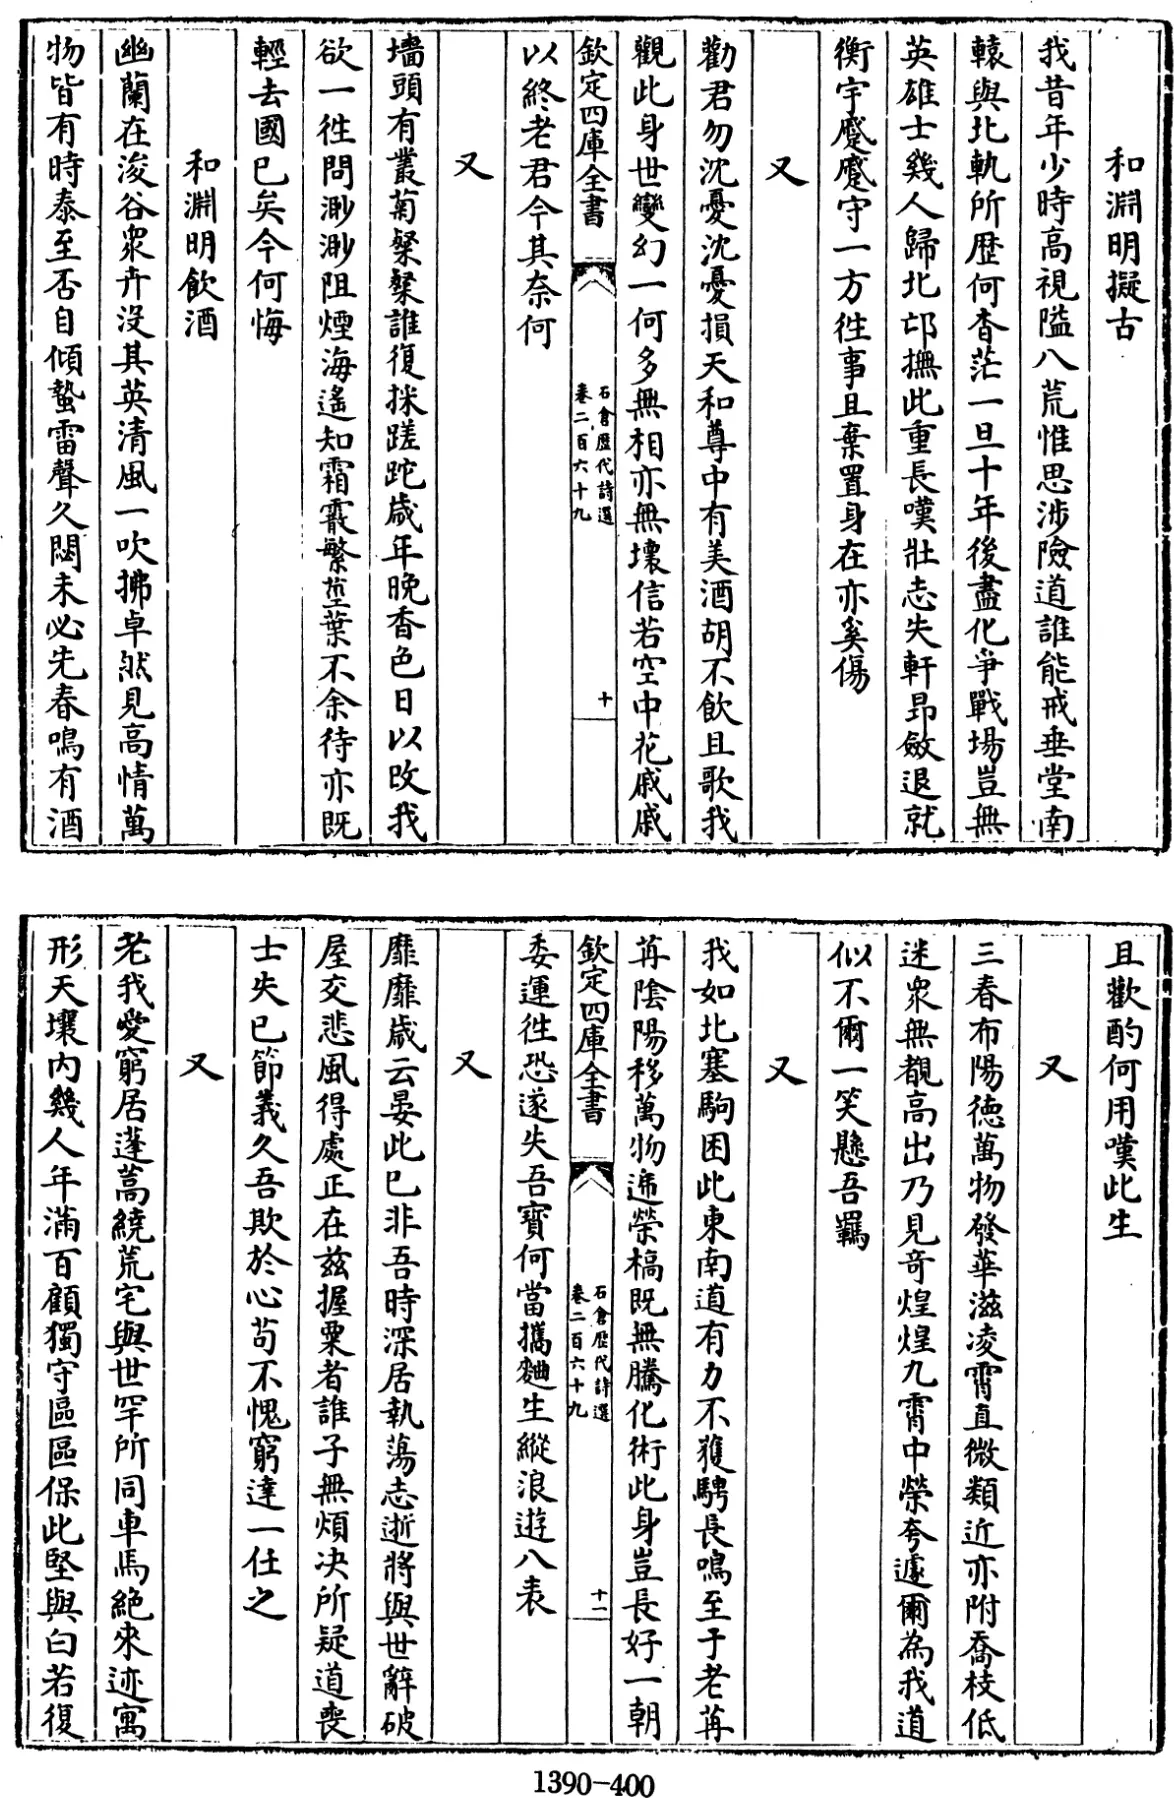 和淵明擬古
我昔年少時高視隘八荒惟思涉險道誰能戒垂堂南
轅與北軌所歷何杳茫一旦十年後盡化爭戰場豈無
英雄士幾人歸北邙撫此重長嘆壯志失軒昂斂退就
衡宇蹙蹙守一方往事且棄置身在亦奚傷
又
勸君勿沈憂沈憂損天和尊中有美酒胡不飲且歌我
觀此身世變幻一何多無相亦無壞信若空中花戚戚
欽定四庫全書
石倉歷代詩選
卷二百六十九
十
以終老君今其奈何
又
墻頭有叢菊粲粲誰復採蹉跎歲年晚香色日以改我
欲一徃問渺渺阻煙海遙知霜霰繁莖葉不余待亦既
輕去國已矣今何悔
和淵明飲酒
幽蘭在浚谷衆卉沒其英清風一吹拂卓然見高情萬
物皆有時泰至否自傾蟄雷聲久閟未必先春鳴有酒
且歡酌何用嘆此生
又
三春布陽德萬物發華滋凌霄直微類近亦附喬枝低
迷衆無覩高出乃見奇煌煌九霄中榮夸遽爾為我道
似不爾一笑懸吾羈
又
我如北塞駒困此東南道有力不獲騁長鳴至于老苒
苒陰陽移萬物遞榮槁既無騰化術此身豈長好一朝
欽定四庫全書
石倉歷代詩選
卷二百六十九
十一
委運徃恐遂失吾寳何當攜麯生縱浪遊八表
又
靡靡歲云晏此已非吾時深居執蕩志逝將與世辭破
屋交悲風得處正在兹握粟者誰子無煩决所疑道喪
士失已節義久吾欺於心苟不愧窮達一任之
又
老我愛窮居蓬蒿繞荒宅與世罕所同車馬絶來迹寓
形天壤内幾人年滿百顧獨守區區保此堅與白若復
1390-400